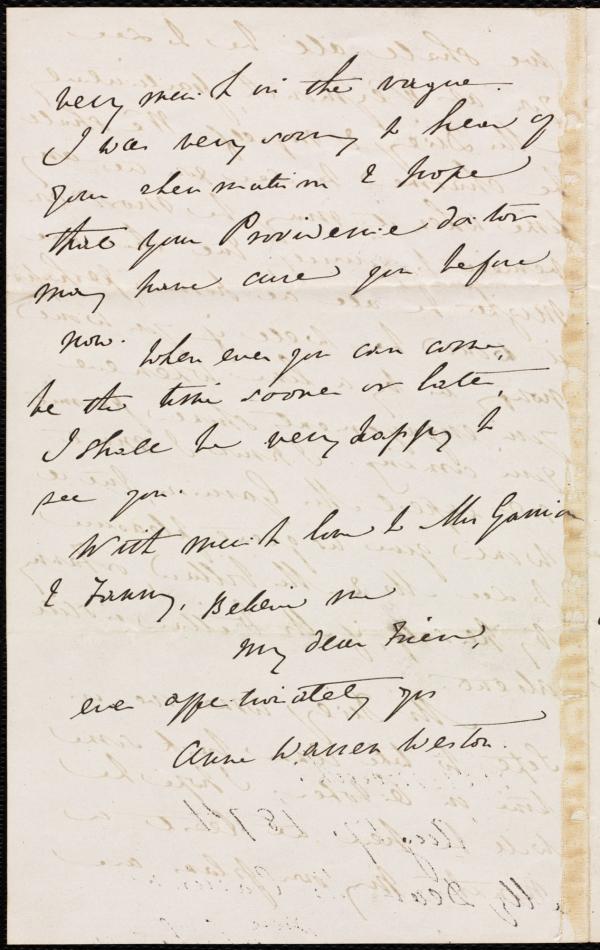 very much in the vague.
I was very sorry to hear of
your rheumatism & hope
that your Providence doctor
may have cured you before
now.
When ever you can come,
be the time sooner or later,
I shall be very happy to
see you.
With much love to Mrs Garrison
& Fanny, Believe me
My dear Friend,
ever affectionately yrs
Anne Warren Weston.